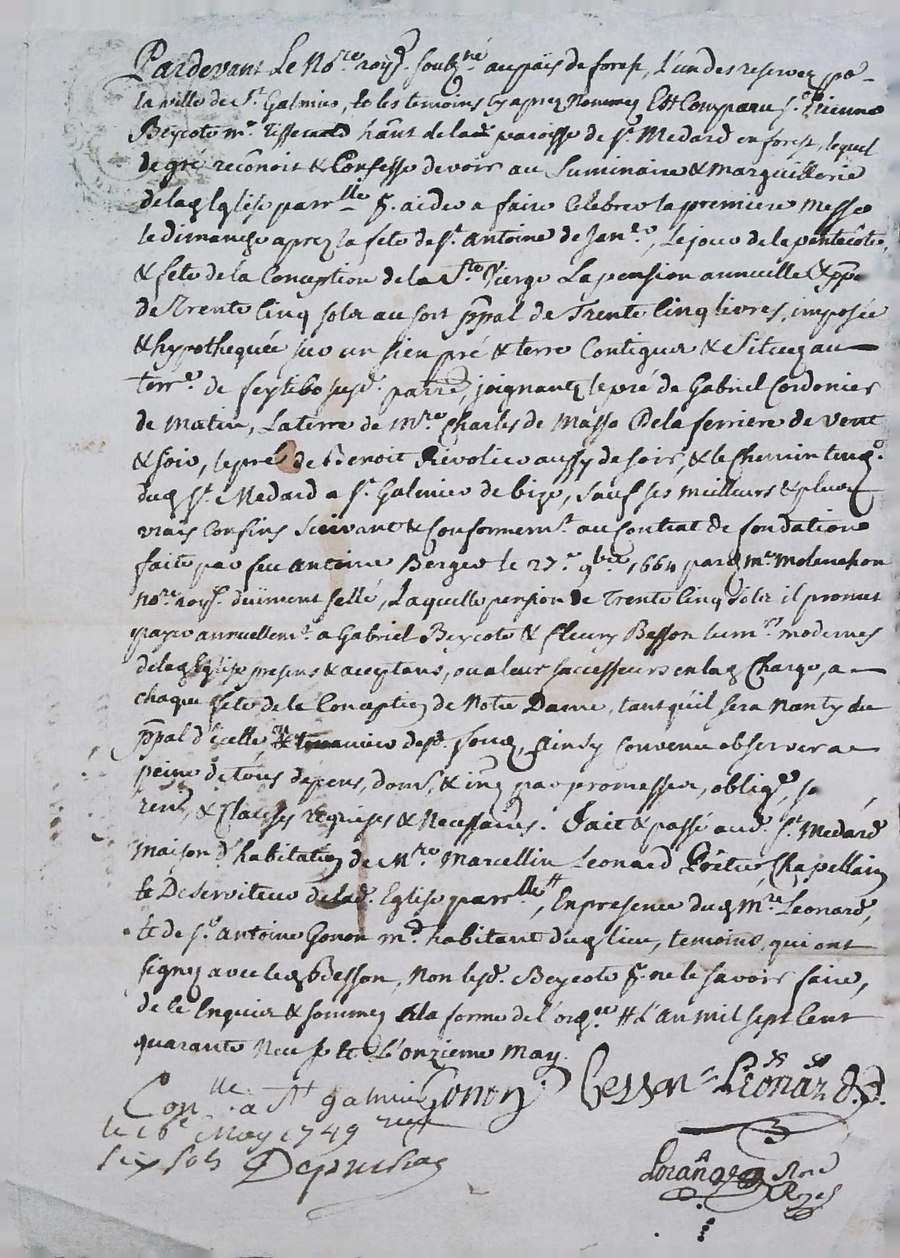 Pardevant Le No.re roy.l soubz.né au païs de forest, L'un des reservez po.r
la ville de S.t Galmier, & les temoins cy aprez Nommez Est Comparu s.r Etienne
Beycote m.e Tisserand hânt de lad. paroisse de S.t Medard en forest, lequel
de gré reconoit & Confesse devoir au Luminaire & Marguillerie
de lad. Eglise parr.lle p.r aider a faire Celebrer la premiere Messe
le dimanche aprez la fete de S.t Antoine de Janv.r, le jour de la pentecôte,
& fete de la Conception de la S.te Vierge La pension annuelle & pp.lle
de Trente Cinq sols au sort pp̃al de Trente Cinq livres, imposée
& hypothequée sur un sien pré & terre Contigus & Situez au
terr.e de susd. parr.e, joignantz le pré de Gabriel Cordonier
de matin, La terre de M.re Charles de Masso De la ferriere de vent
& soir, le pré de Benoit Rivolier aussy de soir, & le Chemin tend.t
dud. S.t Medard a S.t Galmier de bize, sauf ses meilleurs & plus
vrais Confins Suivant & Conformem.t au Contrat de fondation
faite par feu Antoine Berger le 27.e 9.bre 1664 pard. M.e Molenchon
No.re roy.l düement sellé, Laquelle pension de Trente Cinq sols il promet
payer annuellem.t a Gabriel Beycote & fleury Besson lum.rs modernes
de lad. Eglise presens & aceptans, ou a leur successeurs en lad. Charge, a
chaque fete de la Conception de Notre Dame, tant qu'il sera Nanty du
pp̃al d'icelle Ainsy Convenu observer a
peine de tous depens, dom.s, & int. par promesses, oblig.on, so
ren.on, & Clauses requises & Necessaires. Fait & passé aud. S.t Medard
maison d'habitation de M.re Marcellin Leonard Prêtre, Chapellain
& Deserviteur de lad. Eglise parr.lle, En presence dud. M.re Leonard,
& de s.r Antoine Gonon m.d habitant dud. lieu, temoins, qui ont
signez avec led. Besson, Non led. Beycote p.r ne le savoir faire,
de ce Enquis & sommez a la forme de l'ord.ce L'an mil sept Cent
quarante Neuf & L'onzieme May.
Gonon Besson Leonard
Con.lle a S.t galmier
le 16e May 1749
six sols
Nore Royal